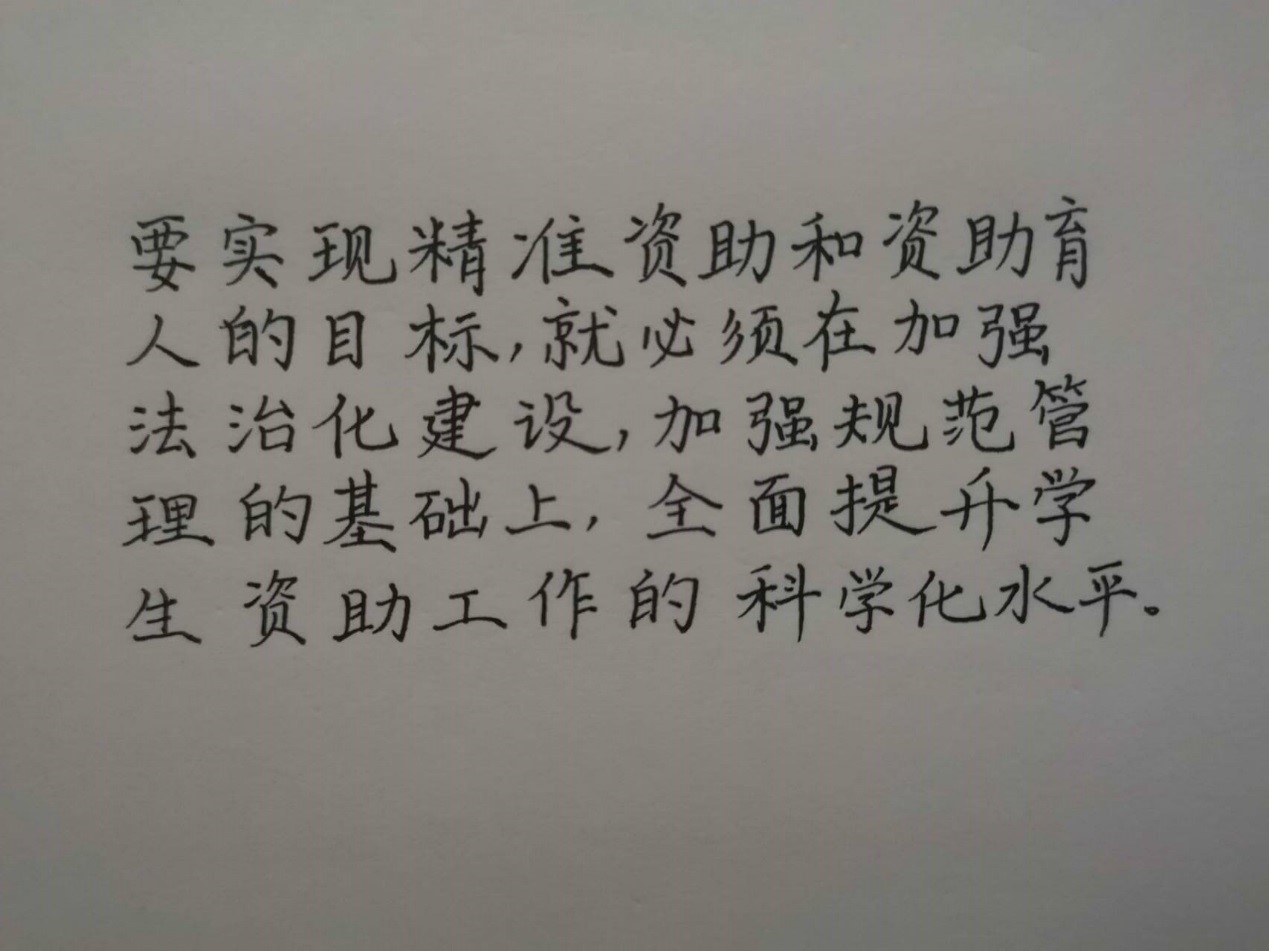 要实现精准资助和资助育
人的目标,就必须在加强
法治化建设,加强规范管
理的基础上,全面提升学
生资助工作的科学化水平。